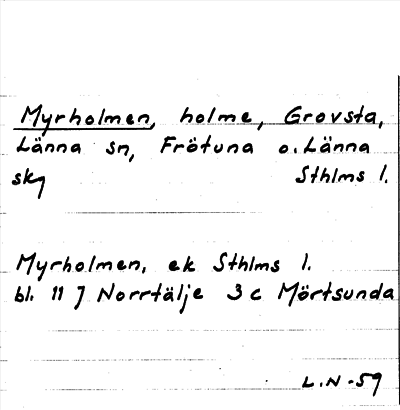 Myrholmen, holme, Grovsta,
Länna sn, Frötuna o. Länna
skg Sthlms l.
Myrholmen, ek Sthlms l.
bl. 11 J Norrtälje 3 c Mörtsunda
L.N-59